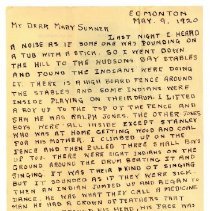 EDMONTON
MAY. 9, 1920
MY DEAR MARY SUMNER
LAST NIGHT I HEARD
A NOISE AS IF SOME ONE WAS POUNDING ON
A TUB WITH A STICK. SO I WENT DOWN
THE HILL TO THE HUDSONS BAY STABLES
AND FOUND THE INDIANS WERE DOING
IT. THERE IS A HIGH BOARD FENCE AROUND
THE STABLES AND SOME INDIANS WERE
INSIDE PLAYING ON THEIR DRUM. I LIFTED
A BOY UP TO THE TOP OF THE FENCE AND
SAW HE WAS RALPH JONES. THE OTHER JONES
BOYS WERE ALL INSIDE EXCEPT STANLEY
WHO WAS AT HOME GETTING WOOD AND COAL
FOR HIS MOTHER. I CLIMBED UP ON THE
FENCE AND THEN PULLED THREE SMALL BOYS
UP TOO. THERE WERE EIGHT INDIANS ON THE
GROUND AROUND THE DRUM BEATING IT AND
SINGING. IT WAS THEIR KIND OF SINGING
BUT IT SOUNDED AS IF THEY WERE SICK.
THEN AN INDIAN JUMPED UP AND BEGAN TO
DANCE. HE WAS WHAT THEY CALL A MEDICINE
MAN. HE HAD A CROWN OF FEATHERS THAT
HIS HEAD, HIS FACE WAS